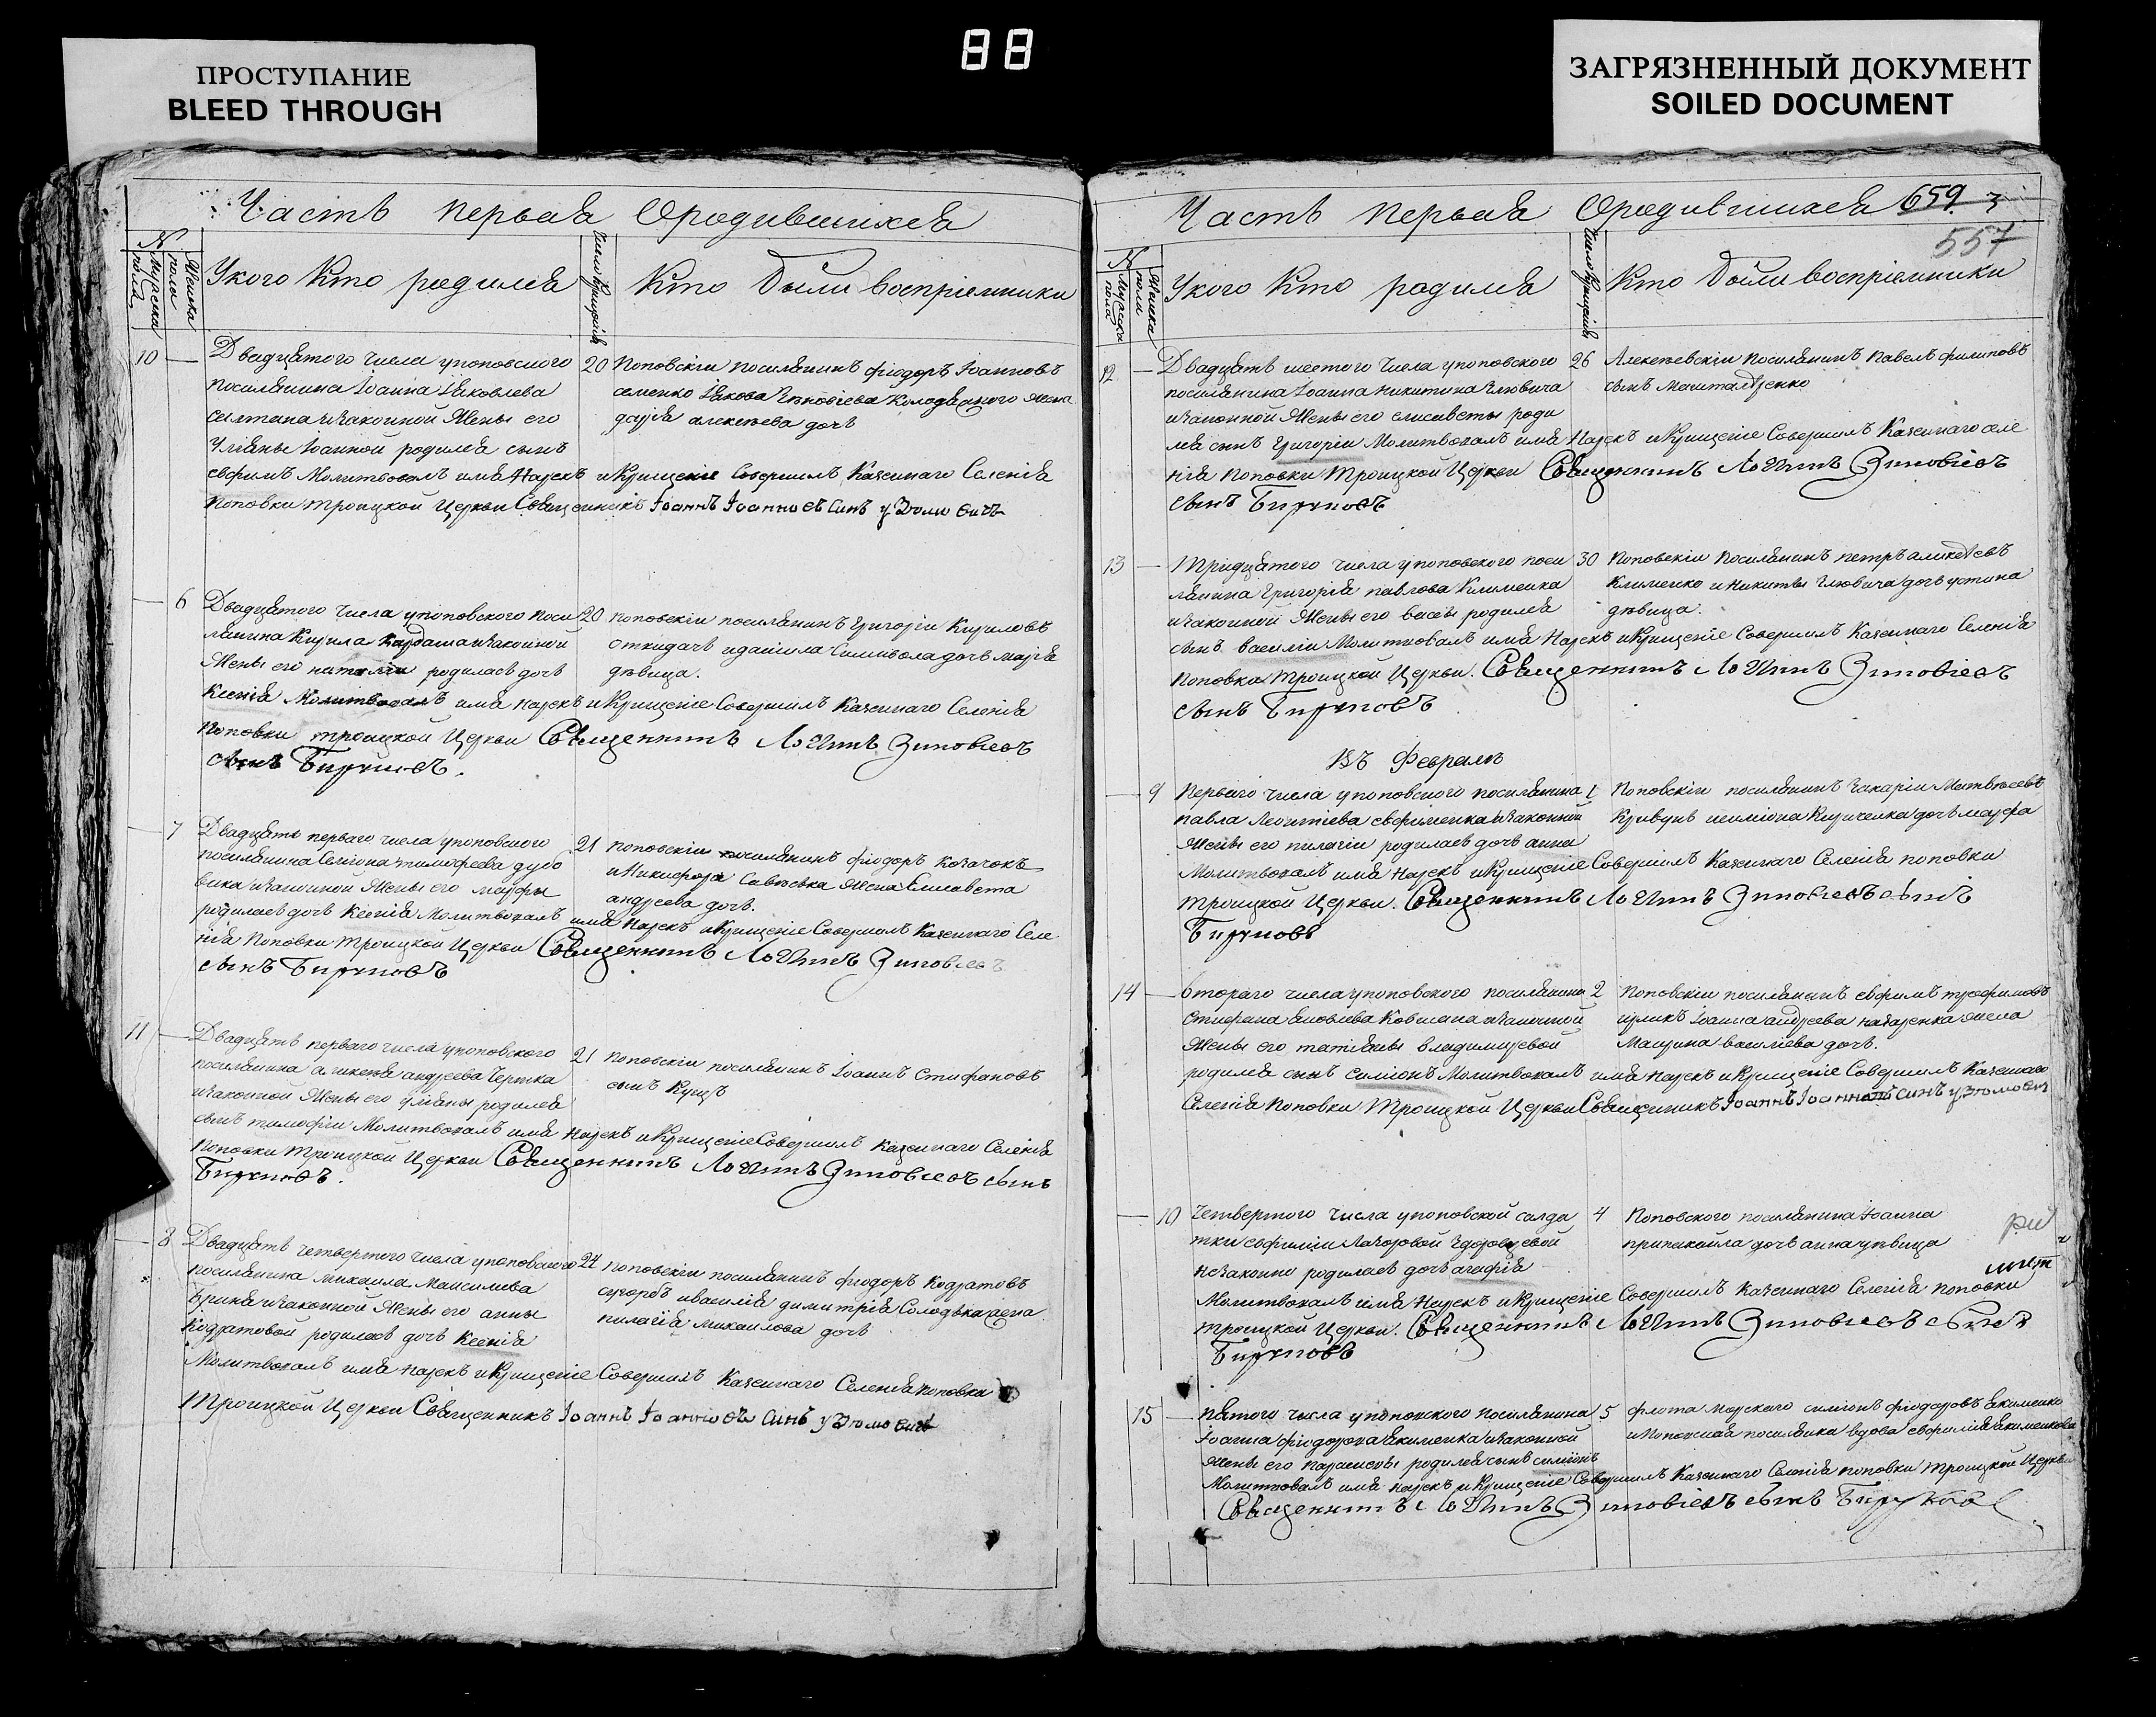 88
ПРОСТУПАНИЕ
BLEED THROUGH
ЗАГРЯЗНЕННЫЙ ДОКУМЕНТ
SOILED DOCUMENT
Часть первая Ородившихся
№
Мужеска пола
Женска пола
Укого Кто родился
Число Крищенія
Кто были восприемники
10
Двадцятого числа упоповского
посилянина Іоанна Яковлева
изаконной Жены его
Уліаны Іоанной родился сынъ
евфимъ Молитвовалъ имя Нарекъ икрищеніе Совершилъ Казеннаго Селенія
Поповки троицкой Церкви Священикъ Іоаннъ Іоанновъ Синъ
20 Поповскіи посилянинъ фіодоръ Іоанновъ
семенко Якова жена
дарія алексѣева дочь
6
Двадцятого числа упоповского поси
лянина Кирила Кардаша изаконной
Жены его наталіи родилась дочь
Ксенія Молитвовалъ имя нарекъ икрищеніе Совершилъ Казеннаго Селенія
Поповки троицкой Церкви Священникъ Логинъ Зиновіевъ
сынъ Бируковъ.
20 поповскіи посилянинъ Григоріи Кириловъ
откидачь иданиила дочь марія
дѣвица.
7
Двадцять перваго числа упоповского
посилянина Семіона тимофеева дубо
вика изаконной Жены его марфы
родилась дочь Ксенія Молитвовалъ имя Нарекъ икрищеніе Совершилъ Казеннаго Селе
нія Поповки троицкой Церкви Священникъ Логинъ Зиновіевъ
сынъ Бируковъ
21 поповскіи посилянинъ фіодоръ Козачокъ
иНикифора Савоська жена Елисавета
андреева дочь.
11
Двадцять перваго числа упоповского
посилянина алексѣя андреева
изаконной Жены его уліаны родился
сынъ тимофіи Молитвовалъ имя Нарекъ икрищеніе Совершилъ Казеннаго Селенія
Поповки Троицкой Церкви Священникъ Логинъ Зиновіевъ сынъ
Бируковъ.
21 поповскіи посилянинъ Іоаннъ Стифановъ
сынъ Куцъ
8
Двадцять четвертого числа упоповского
посилянина михаила Максимова
изаконной Жены его анны
Кодратовой родилась дочь Ксенія
Молитвовалъ имя нарекъ икрищеніе Совершилъ Казеннаго Селенія поповки
Троицкой Церкви Священникъ Іоаннъ Іоанновъ Синъ
24 поповскіи посилянинъ фіодоръ Кодратовъ
ивасилія димитрія жена
пилагія михаилова дочь
Часть первая Ородившихся 659. 3
557
№
Мужеска пола
Женска пола
Укого Кто родился
Число Крищенія
Кто были восприемники
12
Двадцять шестого числа упоповского
посилянина Іоанна Никитина
изаконной Жены его елисаветы роди
лся сынъ Григоріи Молитвовалъ имя Нарекъ икрищеніе Совершилъ Казеннаго селе
нія Поповки Троицкой Церкви Священникъ Логинъ Зиновіевъ
сынъ Бируковъ
26 Алексѣевскіи посилянинъ павелъ филиповъ
сынъ
13
Тридцятого числа упоповского поси
лянина Григорія павлова Клименка
изаконной Жены его васы родился
сынъ василіи Молитвовалъ имя Нарекъ икрищеніе Совершилъ Казеннаго Селенія
Поповки Троицкой Церкви. Священникъ Логинъ Зиновіевъ
сынъ Бируковъ
30 Поповскіи посилянинъ петръ
Клименко и Никиты дочь устина
дѣвица.
Въ Февралѣ
9
Перваго числа упоповского посилянина
павла Леонтіева евфименка изаконной
Жены его пилагіи родилась дочь анна
Молитвовалъ имя Нарекъ икрищеніе Совершилъ Казеннаго Селенія поповки
троицкой Церкви. Священникъ Логинъ Зиновіевъ сынъ
Бируковъ
1 Поповскіи посилянинъ Захаріи Матвѣевъ
Кривунъ исиміона Кириченка дочь марфа
14
Второго числа упоповского посилянина
Стифана Яковлева Ковшана изаконной
Жены его татіаны владимировой
родился сынъ симіонъ Молитвовалъ имя нарекъ икрищеніе Совершилъ Казеннаго
Селенія Поповки Троицкой Церкви Священикъ Іоаннъ Іоанновъ синъ
2 Поповскіи посилянинъ евфимъ трофимовъ
Іоанна андреева назаренка жена
василіева дочь.
10
Четвертого числа упоповской салда
тки евфиміи
незаконно родилась дочь агафія
Молитвовалъ имя Нарекъ икрищеніе Совершилъ Казеннаго Селенія Поповки
троицкой Церкви. Священникъ Логинъ Зиновіевъ сынъ
Бируковъ
4 Поповского посилянина Іоанна
дочь анна дѣвица
15
Пятого числа упоповского посилянина
Іоанна фіодорова Якименка изаконной
Жены его параскевы родился сынъ симіонъ
Молитвовалъ имя нарекъ икрищеніе Совершилъ Казеннаго Селенія поповки троицкой Церкви
Священникъ Логинъ Зиновіевъ сынъ Бируковъ
5 флота морскаго симіонъ фіодоровъ Якименко
иПоповская посилянка вдова евфимія Якименкова